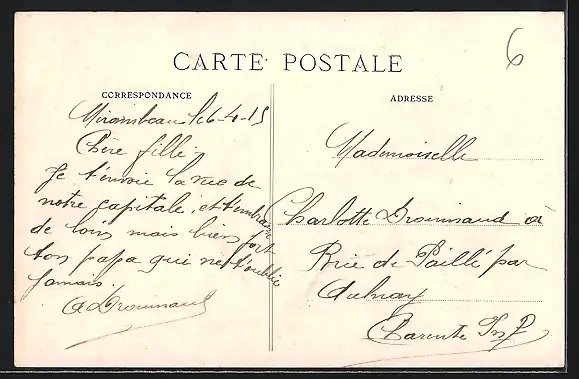 6
CARTE POSTALE
CORRESPONDANCE
Mirambeau le 6-4-15
Chère fille
Je t'envoie la vue de
notre capitale, et t'embrasse
de loin mais bien fort
ton papa qui ne t'oublie
jamais.
A Drouinaud
ADRESSE
Mademoiselle
Charlotte Drouinaud à
Rue de Paillé par
Aulnay
Charente Inf